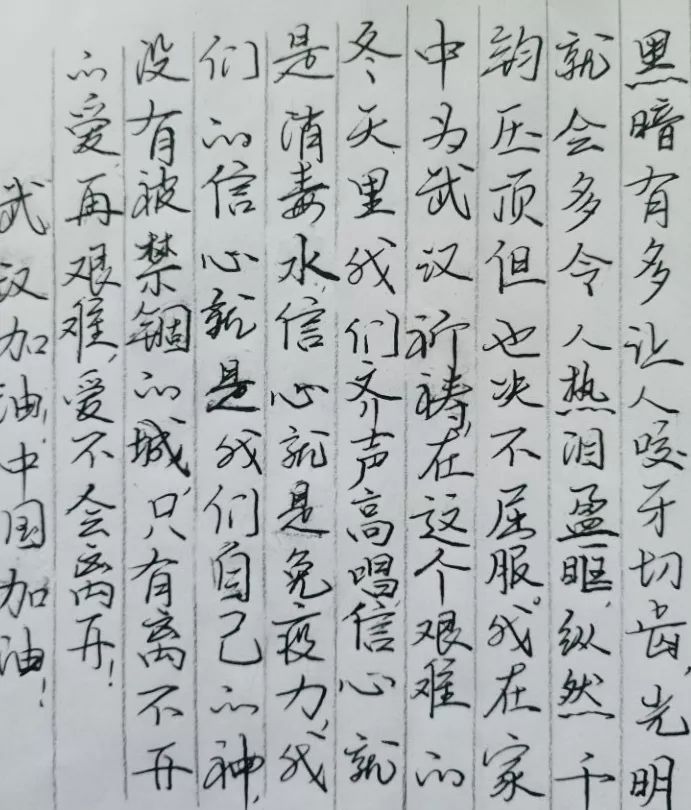 黑暗有多让人咬牙切齿,光明
就会多令人热泪盈眶,纵然千
钧压顶但也决不屈服。我在家
中为武汉祈祷,在这个艰难的
冬天里我们齐声高唱,信心就
是消毒水,信心就是免疫力,我
们的信心就是我们自己的神,
没有被禁锢的城,只有离不开
的爱再艰难,爱不会离开!
武汉加油,中国加油!